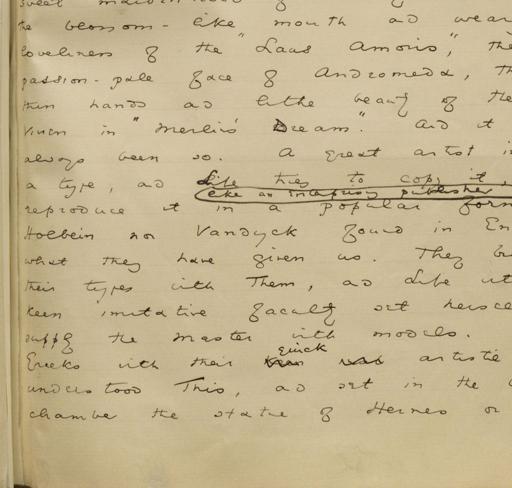 sweet maidenhood of
the blossom-like mouth and wear
loveliness of the "Laus Amoris," the
passion-pale face of Andromeda, th
thin hands and lithe beauty of the
Vivien in "Merlin's Dream." And it
always been so. A great artist in
a type, and Life tries to copy it,
like an enterprising publisher
reproduce it in a popular form
Holbein nor Vandyck found in En
what they have given us. They b
their types with them, and Life wit
keen imitative faculty set herse
supply the master with models.
quick
Greeks with their artistic
understood this, and set in the
chamber the statue of Hermes or